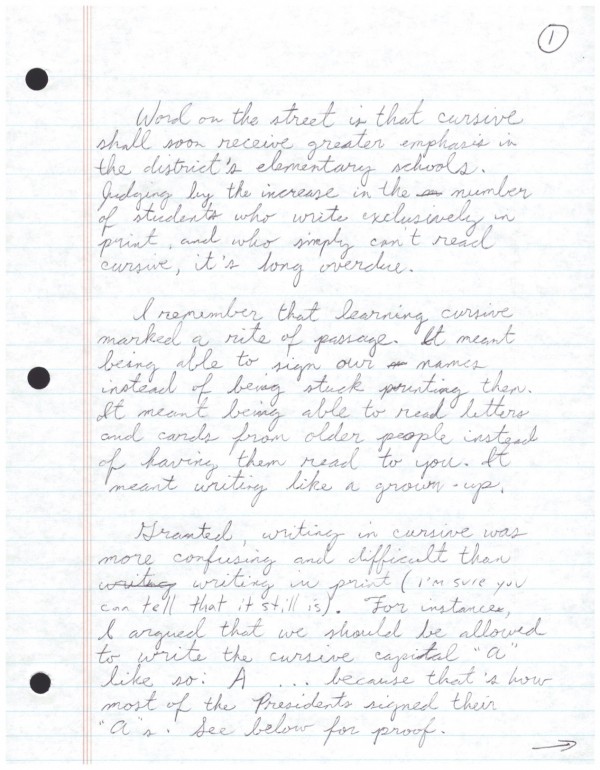 1
Word on the street is that cursive
shall soon receive greater emphasis in
the district's elementary schools.
Judging by the increase in the number
of students who write exclusively in
print, and who simply can't read
cursive, it's long overdue.
I remember that learning cursive
marked a rite of passage. It meant
being able to sign our names
instead of being stuck printing them.
It meant being able to read letters
and cards from older people instead
of having them read to you. It
meant writing like a grown-up.
Granted, writing in cursive was
more confusing and difficult than
writing writing in print (I'm sure you
can tell that it still is). For instance,
I argued that we should be allowed
to write the cursive capital "a"
like so: A ... because that's how
most of the Presidents signed their
"a"s. See below for proof.
→